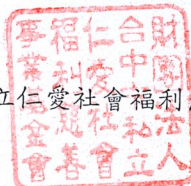 財團法人
台中市私立
仁愛社會
福利慈善
事業基金會
立仁愛社會福利